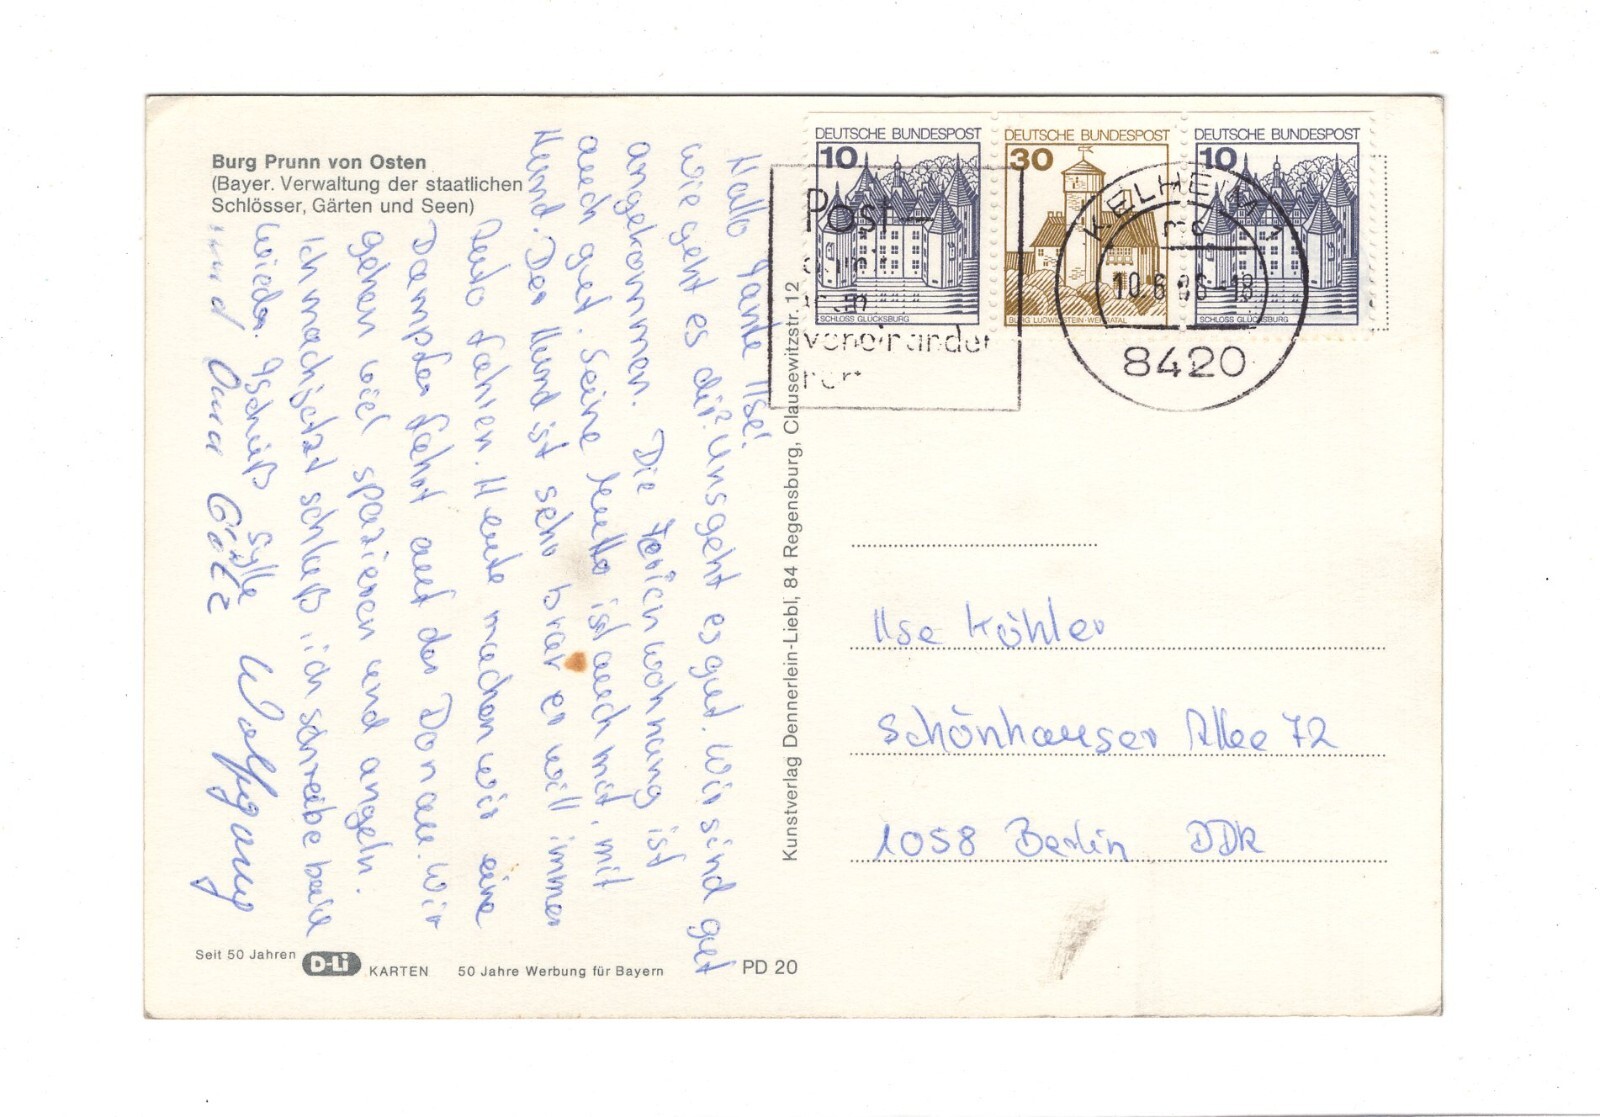 Burg Prunn von Osten
(Bayer. Verwaltung der staatlichen
Schlösser, Gärten und Seen)
Hallo Tante Ilse!
Wie geht es dir? Uns geht es gut. Wir sind gut
angekommen. Die Ferienwohnung ist
auch gut. Seine Mutter ist auch mit, mit
Hund. Der Hund ist sehr brav er will immer
Auto fahren. Heute machen wir eine
Dampferfahrt auf der Donau. Wir
gehen viel spazieren und angeln.
Ich mach jetzt schluß ich schreibe bald
wieder. Tschüß Sylle Wolfgang
und Oma Götz
Seit 50 Jahren D-Li KARTEN 50 Jahre Werbung für Bayern PD 20
Kunstverlag Dennerlein-Liebl, 84 Regensburg, Clausewitzstr. 12
DEUTSCHE BUNDESPOST
10
SCHLOSS GLÜCKSBURG
DEUTSCHE BUNDESPOST
30
BURG LUDWIGSTEIN-WERRATAL
DEUTSCHE BUNDESPOST
10
SCHLOSS GLÜCKSBURG
Post-
voneinander
KELHEIM 1
10.6. 6-18
8420
Ilse Köhler
Schönhauser Allee 72
1058 Berlin DDR